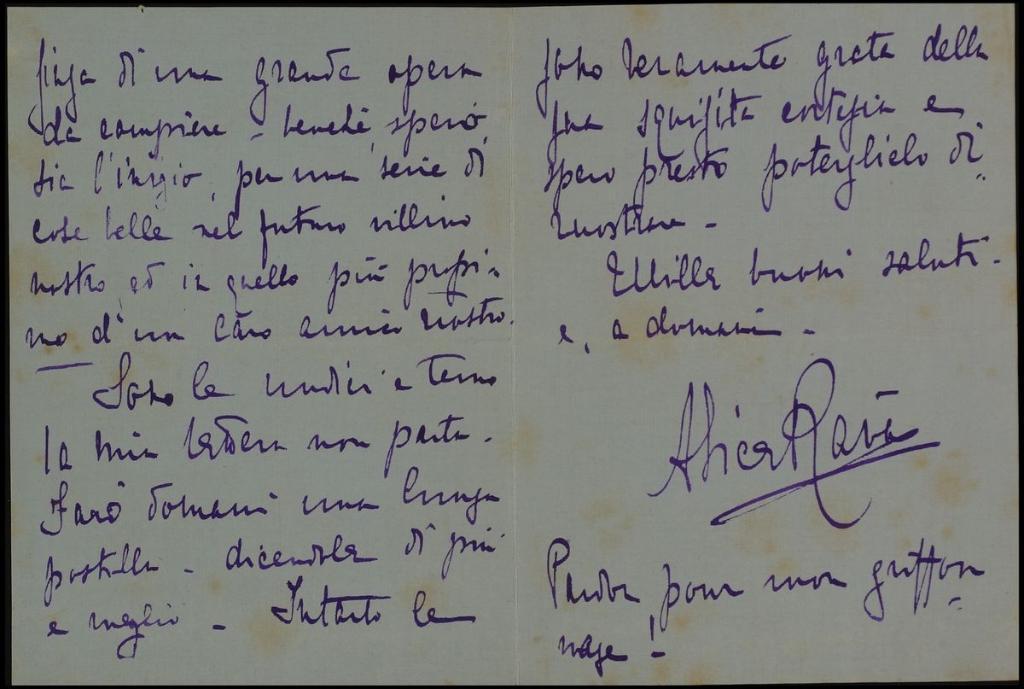 di una grande opera
da compiere - benchè, spero,
sia l'inizio, per una serie di
cose belle nel futuro villino
nostro, ed in quello più prossi-
mo d'un caro amico nostro.
Sono le undici e temo
la mia lettera non parta.
Farò domani una lunga
postilla - dicendole di più
e meglio - Intanto le
sono veramente grata della
sua squisita cortesia e
spero presto poterglielo di-
mostrare -
Mille buoni saluti -
e, a domani -
Alice Ravà
Pardon pour mon griffon-
nage !